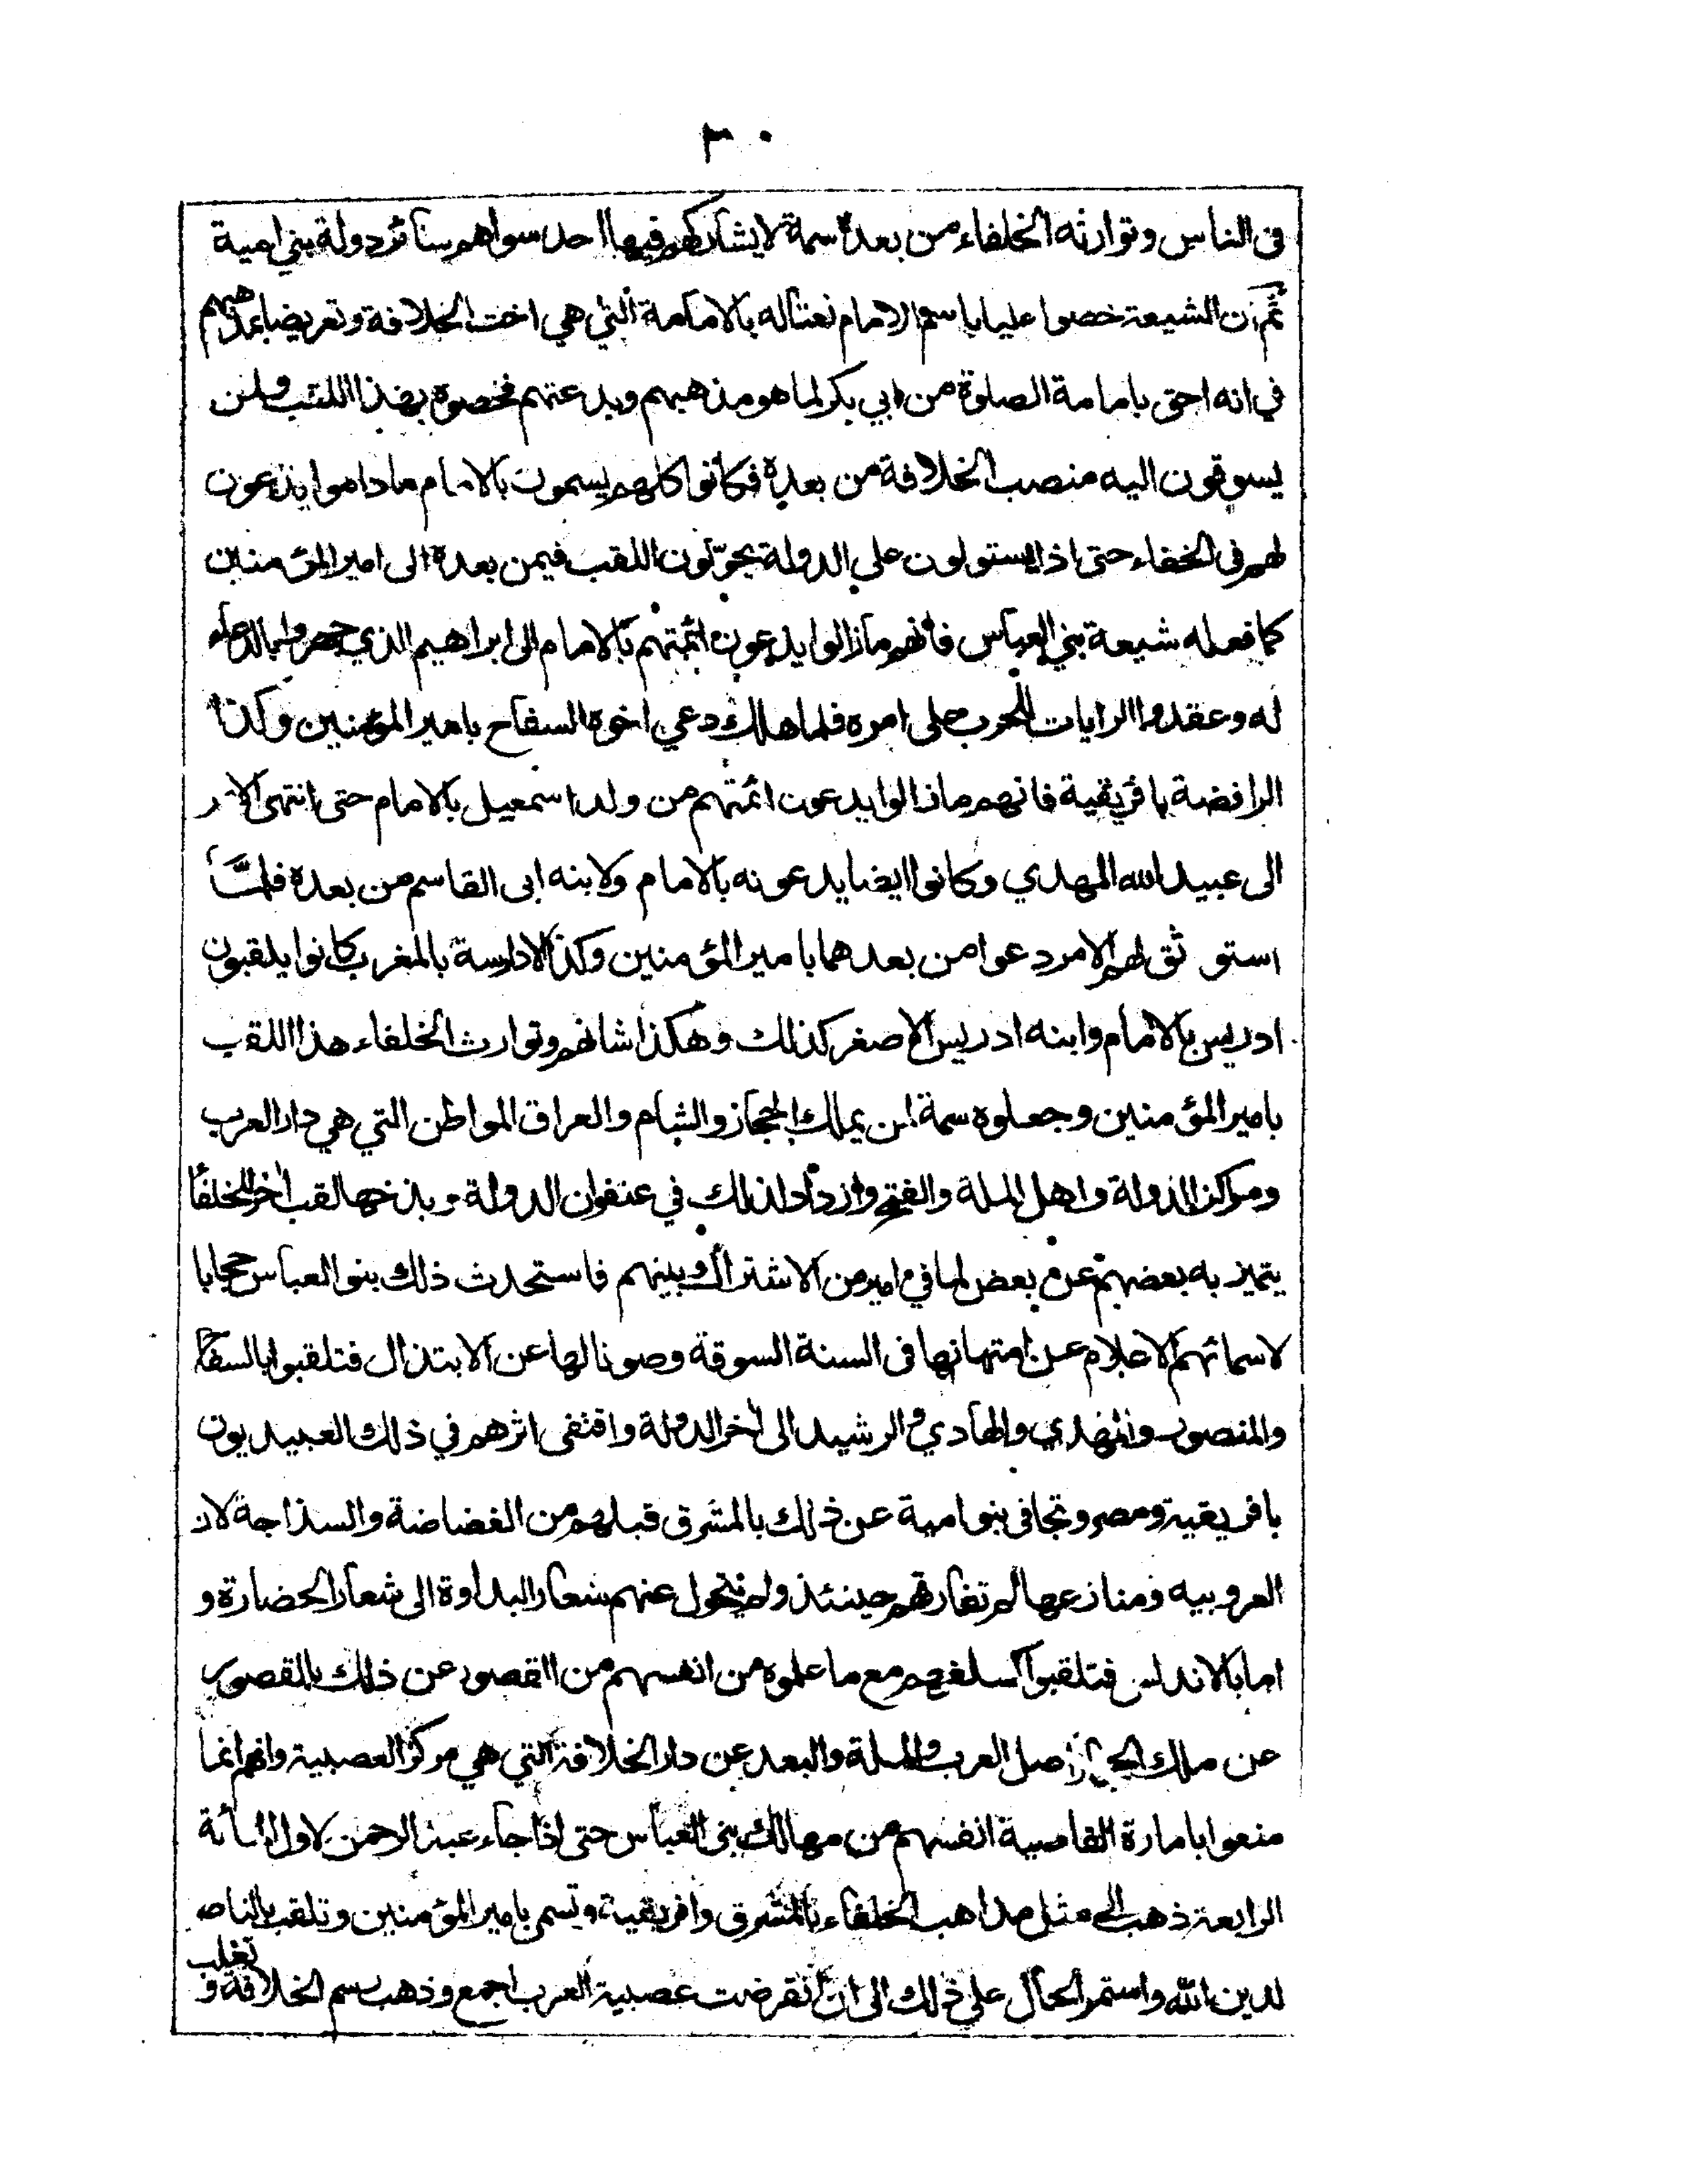 ٣٠
في الناس وتوارثه الخلفاء من بعده سمة لا يشاركهم فيها احد سواهم سائر دولة بني امية
ثم ان الشيعة خصوا عليا باسم الامام نعتا له بالامامة التي هي اخت الخلافة وتعريضا بمذهبهم
في انه احق بامامة الصلوة من ابي بكر لما هو مذهبهم وبدعتهم فخصوه بهذا اللقب ولمن
يسوقون اليه منصب الخلافة من بعده فكانوا كلهم يسمون بالامام ما داموا يدعون
لهم في الخفاء حتى اذا يستولون على الدولة يحولون اللقب فيمن بعده الى امير المؤمنين
كما فعله شيعة بني العباس فانهم مازالوا يدعون ائمتهم بالامام الى ابراهيم الذي جهروا بالدعاء
له وعقدوا الرايات للحرب على امره فلما هلك دعي اخوه السفاح بامير المؤمنين وكذا
الرافضة بافريقية فانهم مازالوا يدعون ائمتهم من ولد اسمعيل بالامام حتى انتهى الامر
الى عبيد الله المهدي وكانوا ايضا يدعونه بالامام ولابنه ابي القاسم من بعده فلمّا
استوثق لهم الامر دعوا من بعدهما بامير المؤمنين وكذا الادارسة بالمغرب كانوا يلقبون
ادريس بالامام وابنه ادريس الاصغر كذلك وهكذا شانهم وتوارث الخلفاء هذا اللقب
بامير المؤمنين وجعلوه سمة لمن يملك الحجاز والشام والعراق المواطن التي هي دار العرب
ومراكز الدولة واهل الملة والفتح وازداد لذلك في عنفوان الدولة وبذخها لقب اخر للخلفا
يتميز به بعضهم عن بعض لما في امير من الاشتراك بينهم فاستحدث ذلك بنو العباس حجابا
لاسمائهم الاعلام عن امتهانها في السنة السوقة وصونا لها عن الابتذال فتلقبوا بالسفاح
والمنصور والمهدي والهادي والرشيد الى اخر الدولة واقتفى اثرهم في ذلك العبيديون
بافريقية ومصر وتجافى بنو امية عن ذلك بالمشرق قبلهم من الغضاضة والسذاجة لان
العروبيه ومنازعها لم تفارقهم حينئذ ولم يتحول عنهم شعار البداوة الى شعار الحضارة و
اما بالاندلس فتلقبوا كسلفهم مع ما علموه من انفسهم من القصور عن ذلك بالقصور
عن ملك الحجاز اصل العرب والملة والبعد عن دار الخلافة التي هي مركز العصبية وانهم انما
منعوا بامارة القاصية انفسهم من مهالك بني العباس حتى اذا جاء عبد الرحمن لاول المائة
الرابعة ذهب الى مثل مذاهب الخلفاء بالمشرق وافريقية وتسمى بامير المؤمنين وتلقب بالناصر
لدين الله واستمر الحال على ذلك الى ان انقرضت عصبية العرب اجمع وذهب رسم الخلافة و تغلب